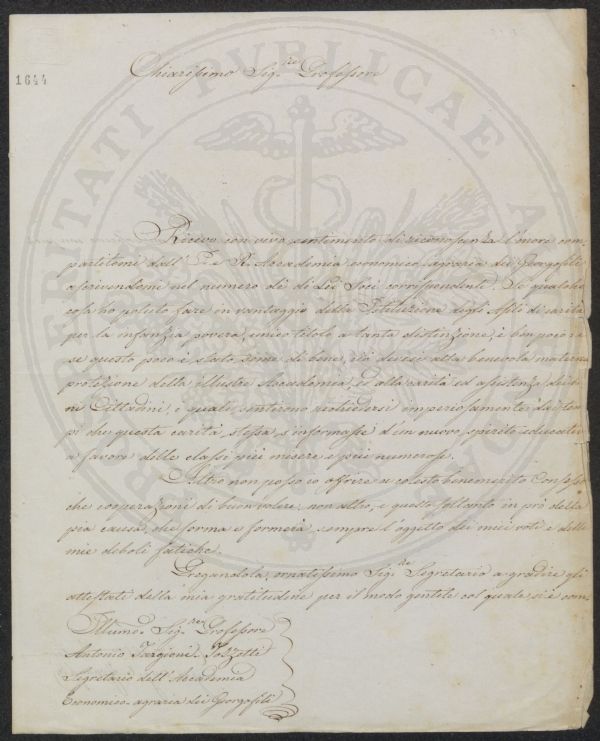 1644
Chiarissimo Sig.re Professore
Ricevo con vivo sentimento di riconoscenza l'onore com-
partitomi dall' I. e R. Accademia economico-agraria dei Georgofili
ascrivendomi nel numero de' di Lei Soci corrispondenti. Se qualche
cosa ho potuto fare in vantaggio della Istituzione degli Asili di carità
per la infanzia povera, unico titolo a tanta distinzione, è ben poco; e
se questo poco è stato seme di bene, ciò devesi alla benevola materna
protezione della illustre Accademia, ed alla carità ed assistenza dei buo-
ni Cittadini, i quali sentirono richiedersi imperiosamente dai tem-
pi che questa carità stessa, s'informasse d'un nuovo spirito educativo
a favore delle classi più misere e più numerose.
Altro non posso io offrire a cotesto benemerito Consesso
che cooperazioni di buon volere, non altro, e questo soltanto in prò della
pia causa, che forma e formerà sempre l'oggetto dei miei voti e delle
mie deboli fatiche.
Pregandola, ornatissimo Sig.re Segretario a gradire gli
attestati della mia gratitudine per il modo gentile col quale si è com-
Illumo. Sig.re Professore
Antonio Targioni-Tozzetti
Segretario dell'Accademia
Economico-agraria dei Georgofili